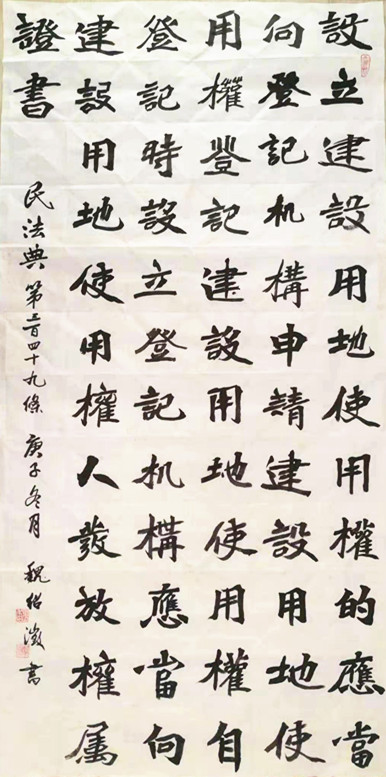 設立建設用地使用權的應當
向登記机構申請建設用地使
用權登記建設用地使用權自
登記時設立登記机構應當向
建設用地使用權人發放權属
證書
民法典第三百四十九條 庚子冬月 魏紹 書